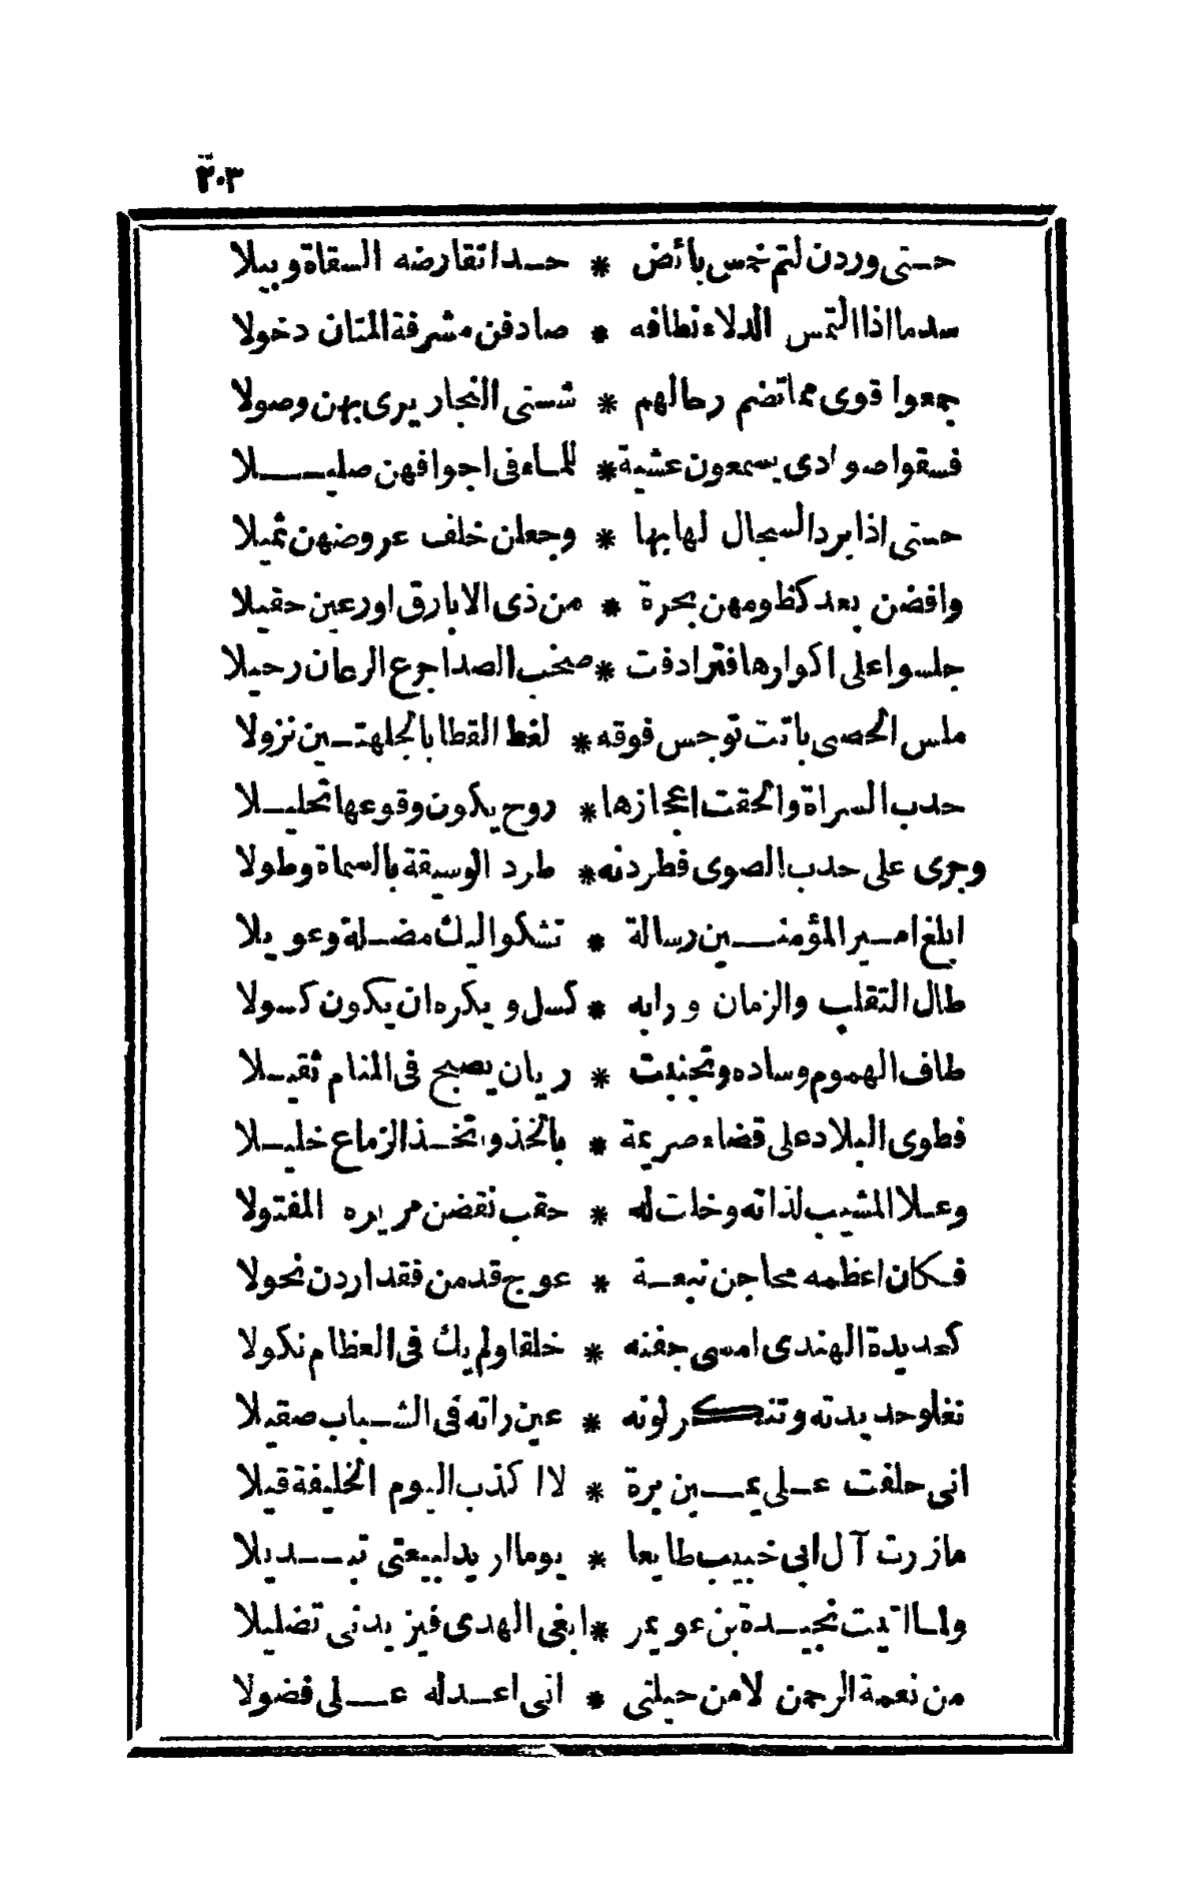 ٢٠٣
حتى وردن لتم خمس بائض * حدا تقارضه السقاة وبيلا
سدما اذا التمس الدلاء نطافه * صادفن مشرفة المتان دخولا
جمعوا قوى مما تضم رحالهم * شتى النجار يرى بهن وصولا
فسقوا صوادى يسمعون عشية * للماء فى اجوافهن صليلا
حتى اذا برد السجال لها بها * وجعلن خلف عروضهن ثميلا
وافضن بعد كظومهن بحرة * من ذى الابارق اورعين حقيلا
جلسوا على اكوارها فترادفت * صخب الصدا جرع الرعان رحيلا
ملس الحصى باتت توجس فوقه * لغط القطا بالجلهتين نزولا
حدب السراة والحقت اعجازها * روح يكون وقوعها تحليلا
وجرى على حدب الصوى فطردنه * طرد الوسيقة بالسماة وطولا
ابلغ امير المؤمنين رسالة * تشكو اليك مضلة وعويلا
طال التقلب والزمان ورابه * كسل ويكره ان يكون كسولا
طاف الهموم وساده وتجنبت * ريان يصبح فى المنام ثقيلا
فطوى البلاد على قضاء صريمة * بالخذ واتخذ الزماع خليلا
وعلا المشيب لذاته وخات له * حقب نقضن مريره المفتولا
فكان اعظمه محاجن نبعة * عوج قدمن فقد اردن نحولا
كحديدة الهندى امسى جفنه * خلقا ولم يك فى العظام نكولا
نغلو حديدته وتنكر لونه * عين راته فى الشباب صقيلا
انى حلفت على يمين برة * لا اكذب اليوم الخليفة قيلا
مازرت آل ابى خبيب طايعا * يوما اريد لبيعتى تبديلا
ولما اتيت نجيدة بن عويمر * ابغى الهدى فيزيدنى تضليلا
من نعمة الرحمن لا من حيلتى * انى اعد له على فضولا